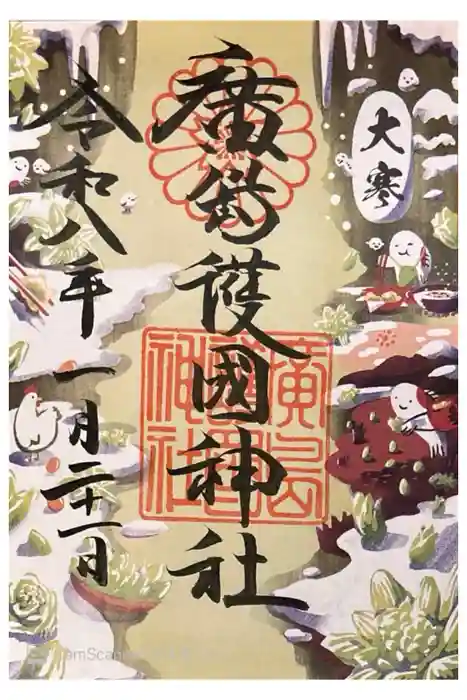 大寒
廣島護國神社
廣島護國神社
令和八年一月二十一日